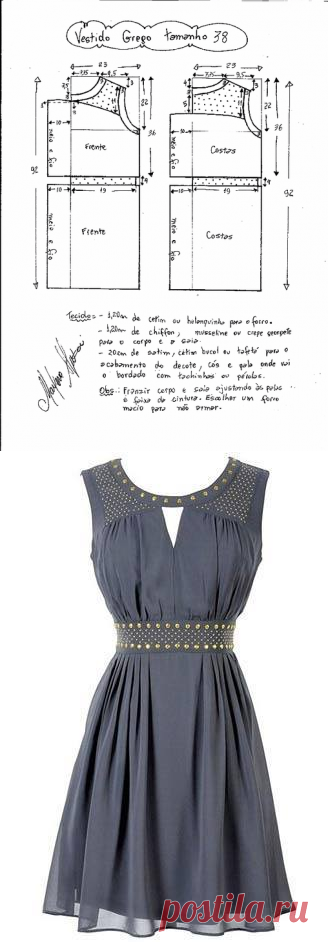 Vestido Grego tamanho 38
23
23
7,5
9,5
7,5
9,5
22
36
22
36
10
10
Frente
Costas
meio e fio
meio e fio
92
92
4
4
10
19
10
19
Frente
Costas
meio e fio
meio e fio
Tecido: - 1,20m de cetim ou helanquinha para o forro.
- 1,20m de chiffon, musseline ou crepe georgete
para o corpo e a saia.
- 20cm de cetim, cetim bucol ou tafetá para o
acabamento do decote, cós e pala onde vai
o bordado com tachinhas ou pérolas.
Obs: Franzir corpo e saia ajustando às palas
e faixa de cintura. Escolher um forro
macio para não armar.
postila.ru